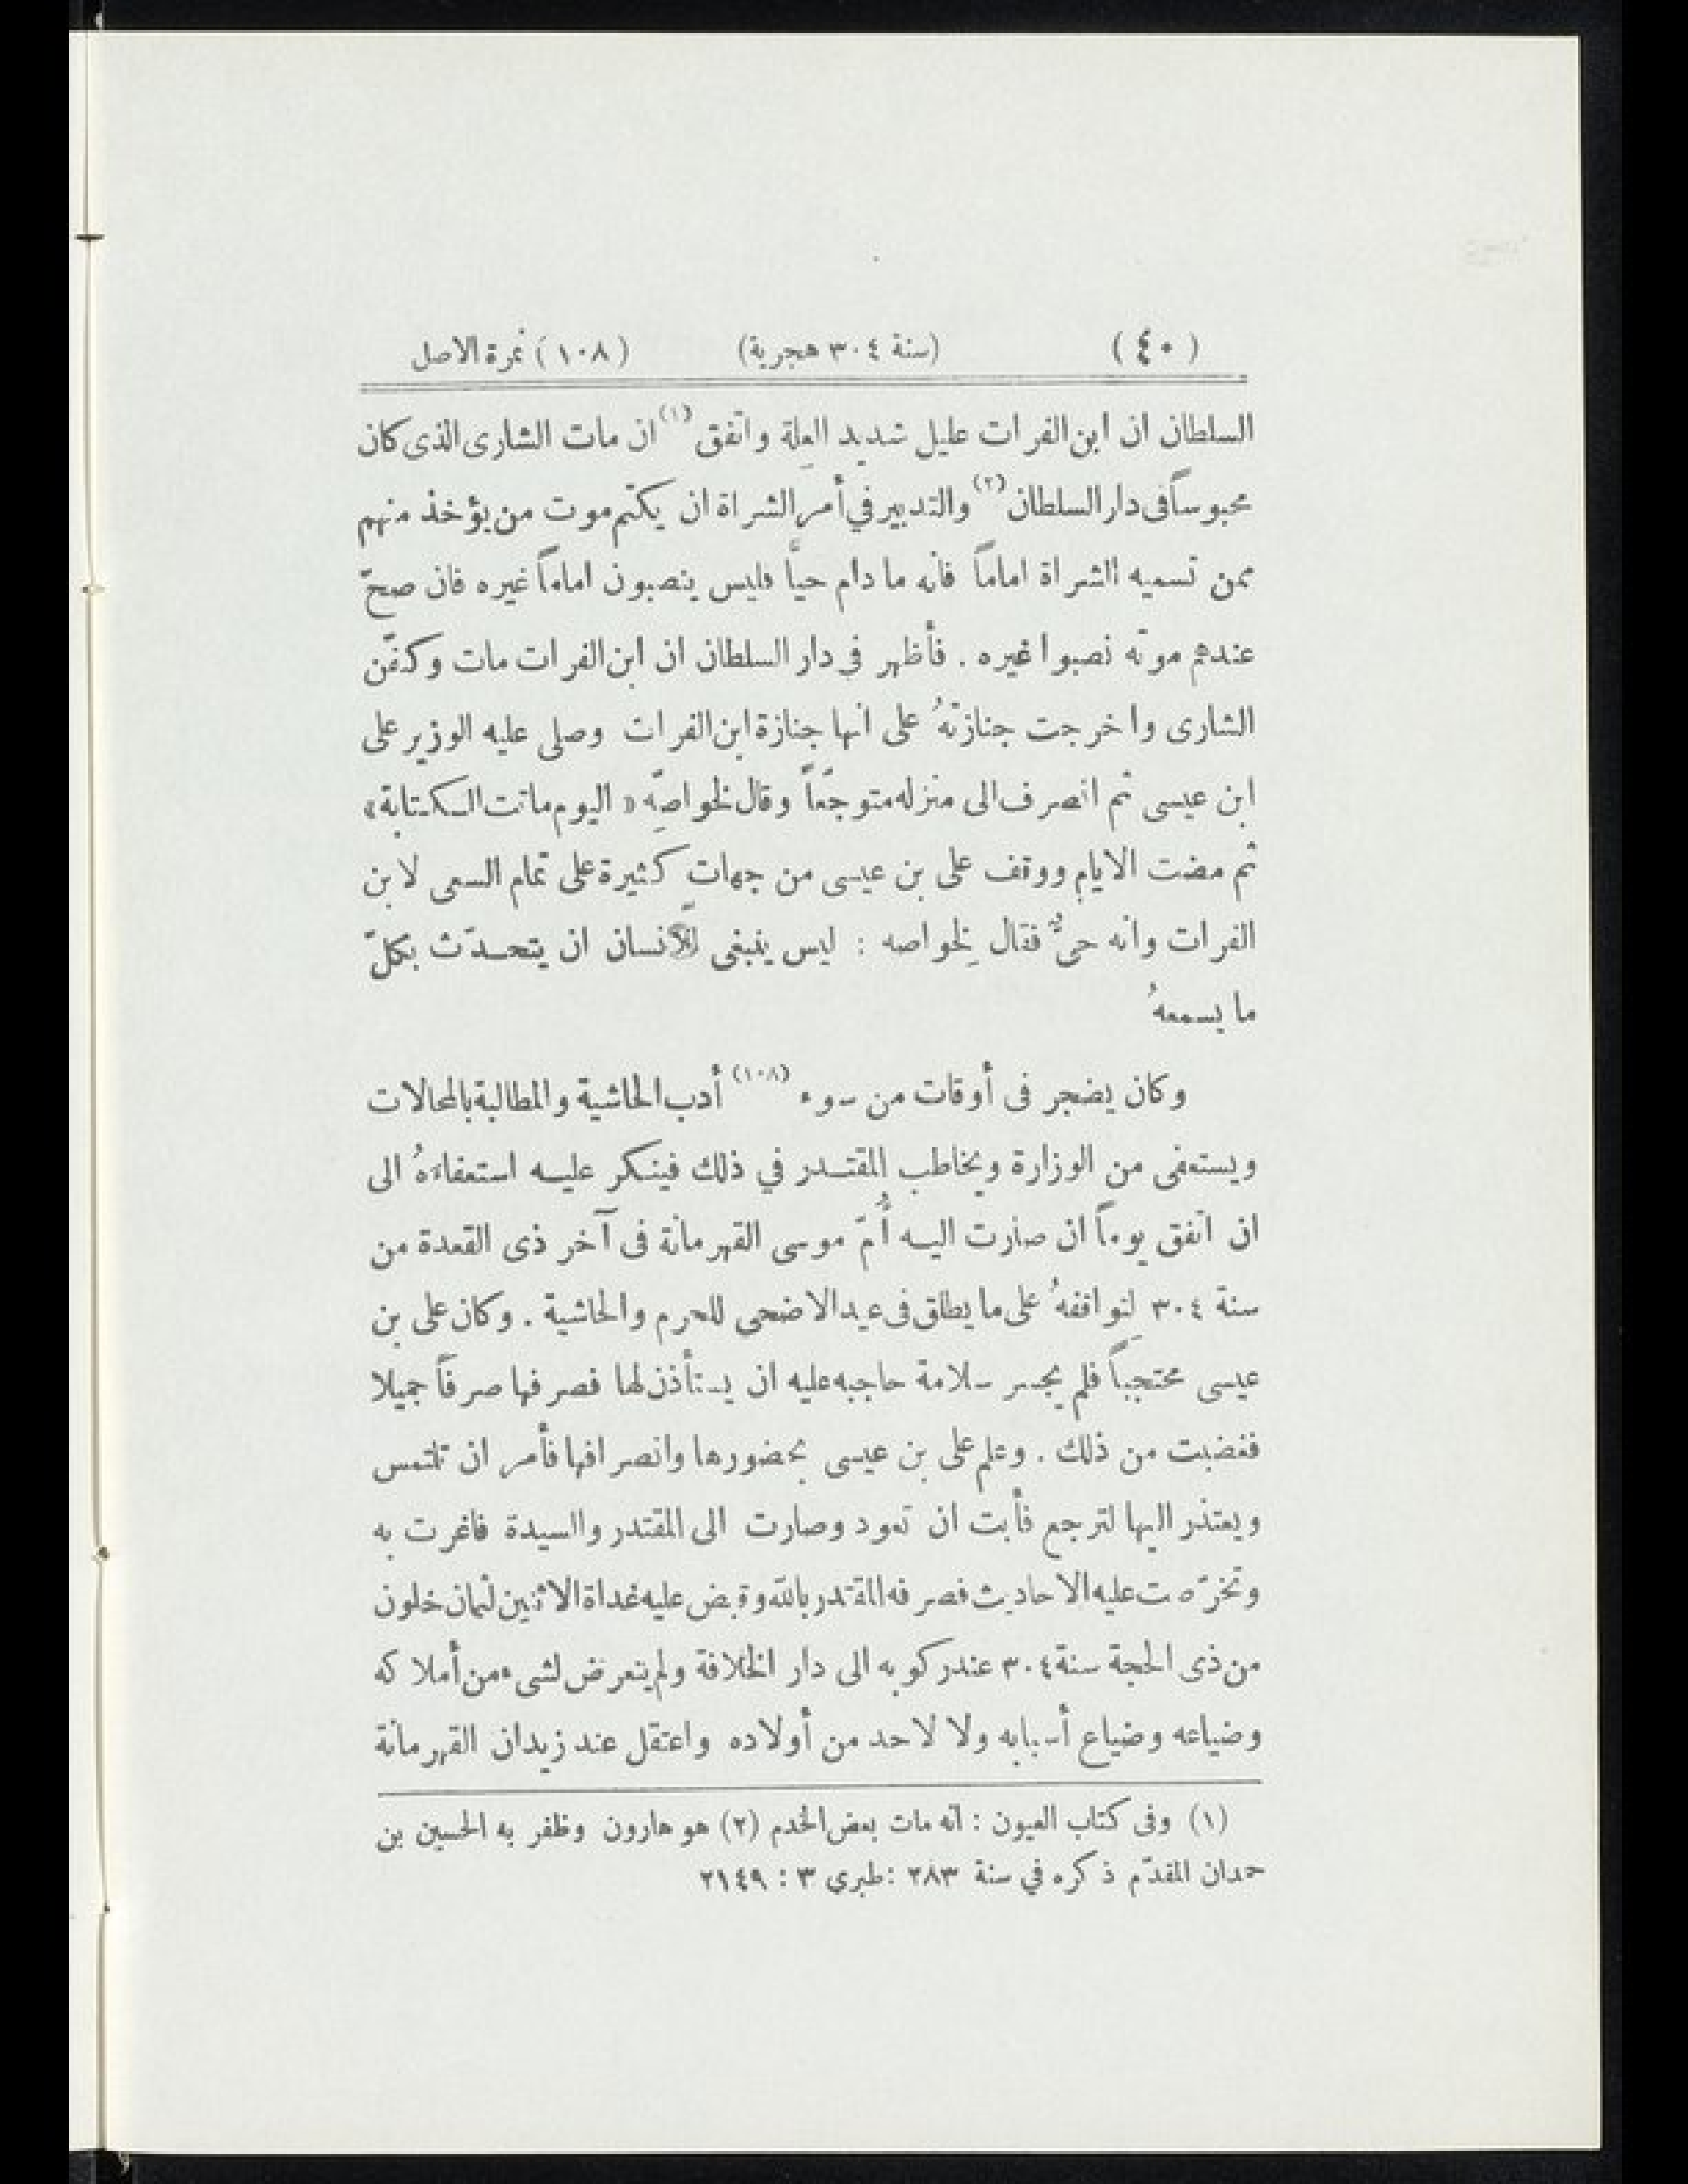 (٤٠) (سنة ٣٠٤ هجرية) (١٠٨) نمرة الاصل
السلطان ان ابن الفرات عليل شديد العلة واتفق (١) ان مات الشارى الذى كان
محبوساً فى دار السلطان (٢) والتدبير في أمر الشراة ان يكتّم موت من يؤخذ منهم
ممن تسميه الشراة اماماً فانه ما دام حيًّا فليس ينصبون اماماً غيره فان صحّ
عندهم موته نصبوا غيره . فأظهر فى دار السلطان ان ابن الفرات مات وكفّن
الشارى واخرجت جنازتهُ على انها جنازة ابن الفرات وصلى عليه الوزير على
ابن عيسى ثم انصرف الى منزله متوجّعاً وقال لخواصّه « اليوم ماتت الكتابة »
ثم مضت الايام ووقف على بن عيسى من جهاتٍ كثيرة على تمام السعى لابن
الفرات وانه حىٌّ فقال لِخواصه : ليس ينبغى للأنسان ان يتحدّث بكلّ
ما يسمعهُ
وكان يضجر فى أوقات من سوء (١٠٨) أدب الحاشية والمطالبة بالمحالات
ويستعفى من الوزارة ويخاطب المقتدر في ذلك فينكر عليه استعفاءهُ الى
ان اتفق يوماً ان صارت اليه أُمّ موسى القهرمانة فى آخر ذى القعدة من
سنة ٣٠٤ لِتوافقهُ على ما يطلق فى عيد الاضحى للحرم والحاشية . وكان على بن
عيسى محتجباً فلم يجسر سلامة حاجبه عليه ان يستأذن لها فصرفها صرفاً جميلا
فغضبت من ذلك . وعلم على بن عيسى بحضورها وانصرافها فأمر ان تلتمس
ويعتذر اليها لترجع فأبت ان تعود وصارت الى المقتدر والسيدة فاغرت به
وتخرّصت عليه الاحاديث فصرفه المقتدر بالله وقبض عليه غداة الاثنين لثمان خلون
من ذى الحجة سنة ٣٠٤ عند ركوبه الى دار الخلافة ولم يتعرض لشىء من أملاكه
وضياعه وضياع أسبابه ولا لاحد من أولاده واعتقل عند زيدان القهرمانة
(١) وفى كتاب العيون : انه مات بعض الخدم (٢) هو هارون وظفر به الحسين بن
حمدان المقدّم ذكره في سنة ٢٨٣ : طبرى ٣ : ٢١٤٩